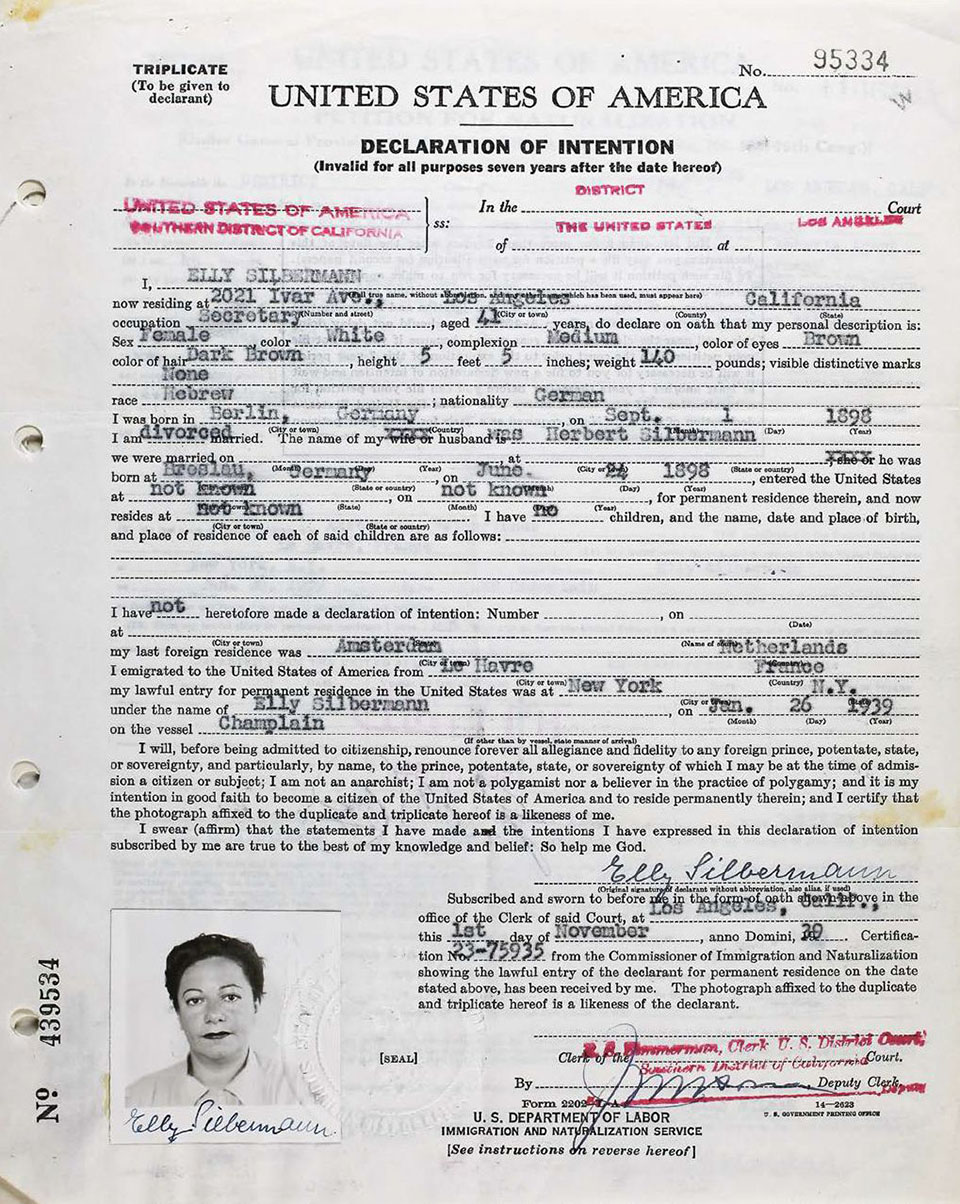 TRIPLICATE
(To be given to
declarant)
No. 95334
UNITED STATES OF AMERICA
DECLARATION OF INTENTION
(Invalid for all purposes seven years after the date hereof)
UNITED STATES OF AMERICA
SOUTHERN DISTRICT OF CALIFORNIA
ss:
In the DISTRICT Court
of THE UNITED STATES at LOS ANGELES
I, ELLY SILBERMANN
(Full true name, without abbreviation, which has been used, must appear here)
now residing at 2021 Ivar Ave., Los Angeles California
(Number and street) (City or town) (County) (State)
occupation Secretary, aged 41 years, do declare on oath that my personal description is:
Sex Female, color White, complexion Medium, color of eyes Brown
color of hair Dark Brown, height 5 feet 5 inches; weight 140 pounds; visible distinctive marks
None
race Hebrew; nationality German
I was born in Berlin, Germany, on Sept. 1 1898
(City or town) (Country) (Month) (Day) (Year)
I am divorced married. The name of my wife or husband is was Herbert Silbermann
we were married on, at; she or he was
(Month) (Day) (Year) (City or town) (State or country)
born at Breslau, Germany, on June. 24 1898, entered the United States
(State or country) (Day) (Year)
at not known, on not known, for permanent residence therein, and now
(State) (Month) (Year)
resides at not known. I have no children, and the name, date and place of birth,
(City or town) (State or country)
and place of residence of each of said children are as follows:
I have not heretofore made a declaration of intention: Number, on
(Date)
at
(City or town) (State) (Name of court)
my last foreign residence was Amsterdam Netherlands
(City or town) (Country)
I emigrated to the United States of America from Le Havre France
(City or town) (Country)
my lawful entry for permanent residence in the United States was at New York N.Y.
(City or town) (State)
under the name of Elly Silbermann, on Jan. 26 1939
(Month) (Day) (Year)
on the vessel Champlain
(If other than by vessel, state manner of arrival)
I will, before being admitted to citizenship, renounce forever all allegiance and fidelity to any foreign prince, potentate, state,
or sovereignty, and particularly, by name, to the prince, potentate, state, or sovereignty of which I may be at the time of admis-
sion a citizen or subject; I am not an anarchist; I am not a polygamist nor a believer in the practice of polygamy; and it is my
intention in good faith to become a citizen of the United States of America and to reside permanently therein; and I certify that
the photograph affixed to the duplicate and triplicate hereof is a likeness of me.
I swear (affirm) that the statements I have made and the intentions I have expressed in this declaration of intention
subscribed by me are true to the best of my knowledge and belief: So help me God.
Elly Silbermann
(Original signature of declarant without abbreviation, also alias, if used)
Subscribed and sworn to before me in the form of oath shown above in the
office of the Clerk of said Court, at Los Angeles, Calif.,
this 1st day of November, anno Domini, 39. Certifica-
tion No. 23-75935 from the Commissioner of Immigration and Naturalization
showing the lawful entry of the declarant for permanent residence on the date
stated above, has been received by me. The photograph affixed to the duplicate
and triplicate hereof is a likeness of the declarant.
R. S. Zimmerman, Clerk U. S. District Court,
[SEAL]
Clerk of the Southern District of California Court.
By Deputy Clerk. Deputy
Form 2202-L-A
14-2623
U. S. GOVERNMENT PRINTING OFFICE
U. S. DEPARTMENT OF LABOR
IMMIGRATION AND NATURALIZATION SERVICE
[See instructions on reverse hereof]
Elly Silbermann
No 439534